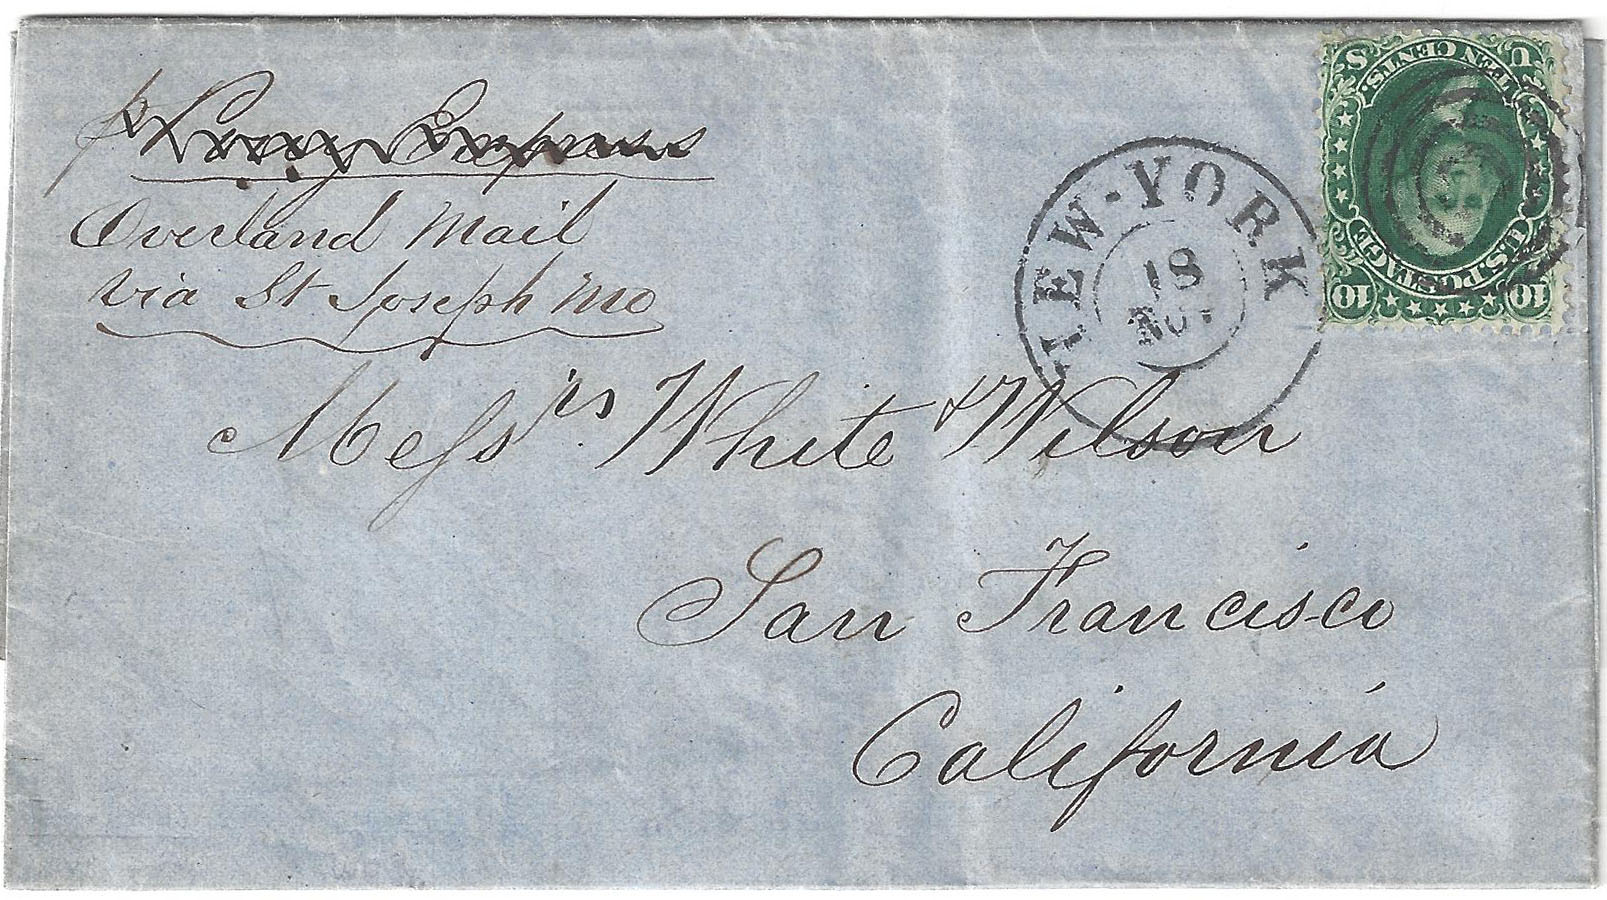 p Pony Express
Overland Mail
via St Joseph Mo
NEW-YORK
18
NOV
U S
TEN CENTS.
U.S. POSTAGE
10 10
Mess'rs White & Wilson
San Francisco
California